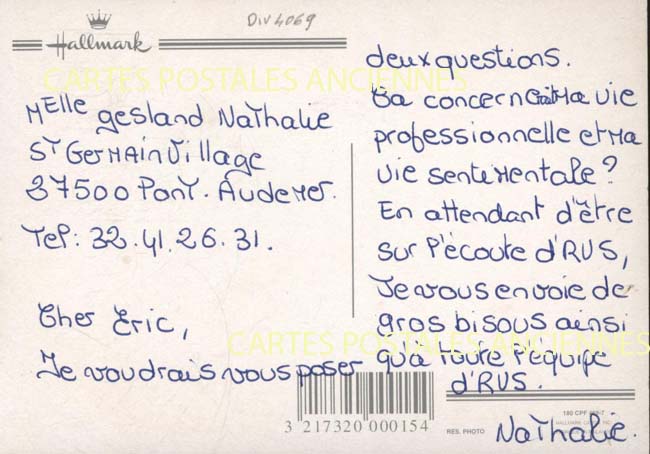 Div 4069
Hallmark
CARTES POSTALES ANCIENNES
Melle gesland Nathalie
St Germain Village
27500 Pont. Audemer.
Tel: 32.41.26.31.
Cher Eric,
Je voudrais vous poser
deux questions.
ça concernerait ma vie
professionnelle et ma
vie sentimentale?
En attendant d'être
sur l'écoute d'RVS,
Je vous envoie de
gros bisous ainsi
qu'à toute l'équipe
d'RVS.
Nathalie.
CARTES POSTALES ANCIENNES
3 217320 000154
RES. PHOTO
180 CPF